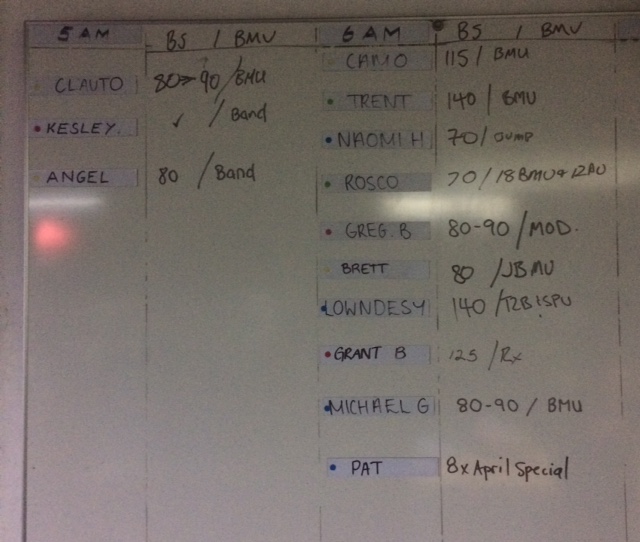 5 AM BS / BMU 6 AM BS / BMU
CLAUTO 80->90/BMU
KESLEY. ✓ / Band
ANGEL 80 / Band
CAMO 115/ BMU
TRENT 140 / BMU
NAOMI H 70/ Jump
ROSCO 70/18BMU+12RU
GREG. B 80-90/MOD.
BRETT 80 /JBMU
LOWNDESY 140
GRANT B 125 /Rx
MICHAEL G 80-90 / BMU
PAT 8x April Special